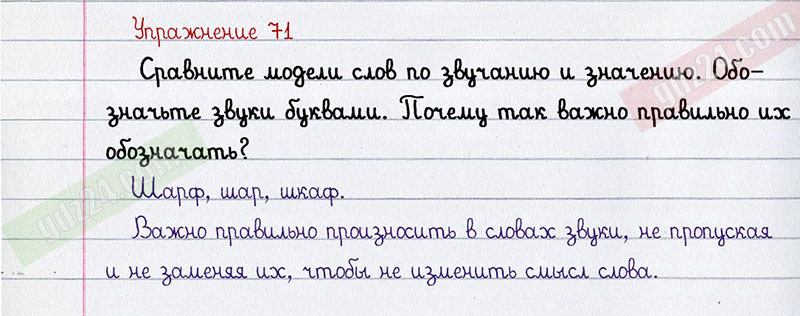 Упражнение 71
Сравните модели слов по звучанию и значению. Обо-
значьте звуки буквами. Почему так важно правильно их
обозначать?
Шарф, шар, шкаф.
Важно правильно произносить в словах звуки, не пропуская
и не заменяя их, чтобы не изменить смысл слова.
gdz24.com
gdz24.com